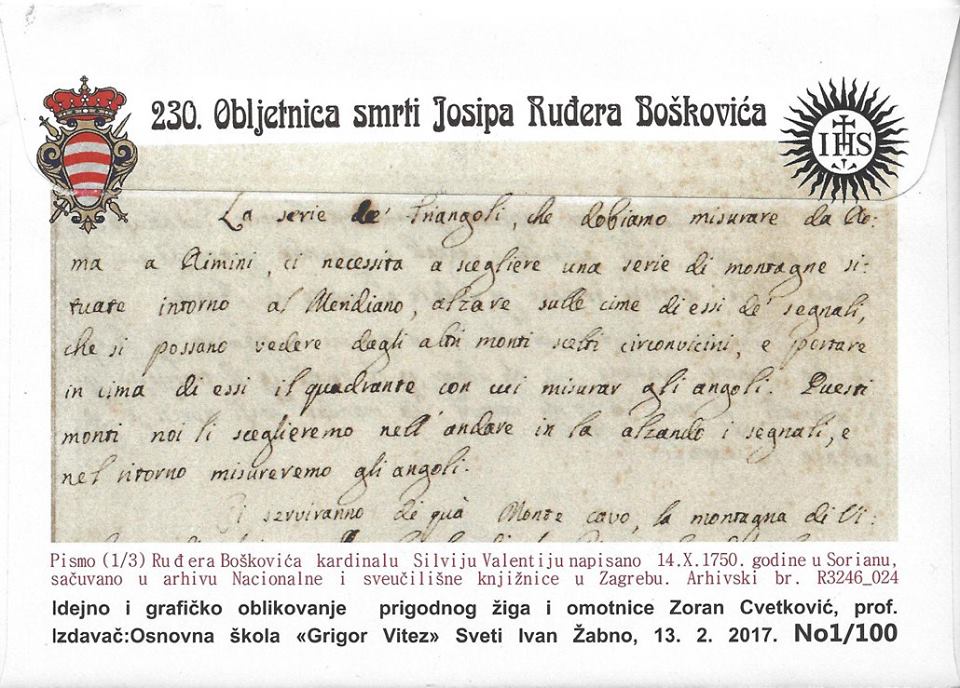 230. Obljetnica smrti Josipa Ruđera Boškovića
IHS
La serie de' triangoli, che dobiamo misurare da Ro:
ma a Rimini, ci necessita a scegliere una serie di montagne si:
tuate intorno al Meridiano, alzare sulle cime di essi de' segnali,
che si possano vedere dagli altri monti scelti circonvicini, e portare
in cima di essi il quadrante con cui misurar gli angoli. Questi
monti noi li sceglieremo nell' andare in la alzando i segnali, e
nel ritorno misureremo gli angoli.
serviranno di quà Monte cavo, la montagna di Vi:
Pismo (1/3) Ruđera Boškovića kardinalu Silviju Valentiju napisano 14.X.1750. godine u Sorianu,
sačuvano u arhivu Nacionalne i sveučilišne knjižnice u Zagrebu. Arhivski br. R3246_024
Idejno i grafičko oblikovanje prigodnog žiga i omotnice Zoran Cvetković, prof.
Izdavač:Osnovna škola «Grigor Vitez» Sveti Ivan Žabno, 13. 2. 2017. No1/100